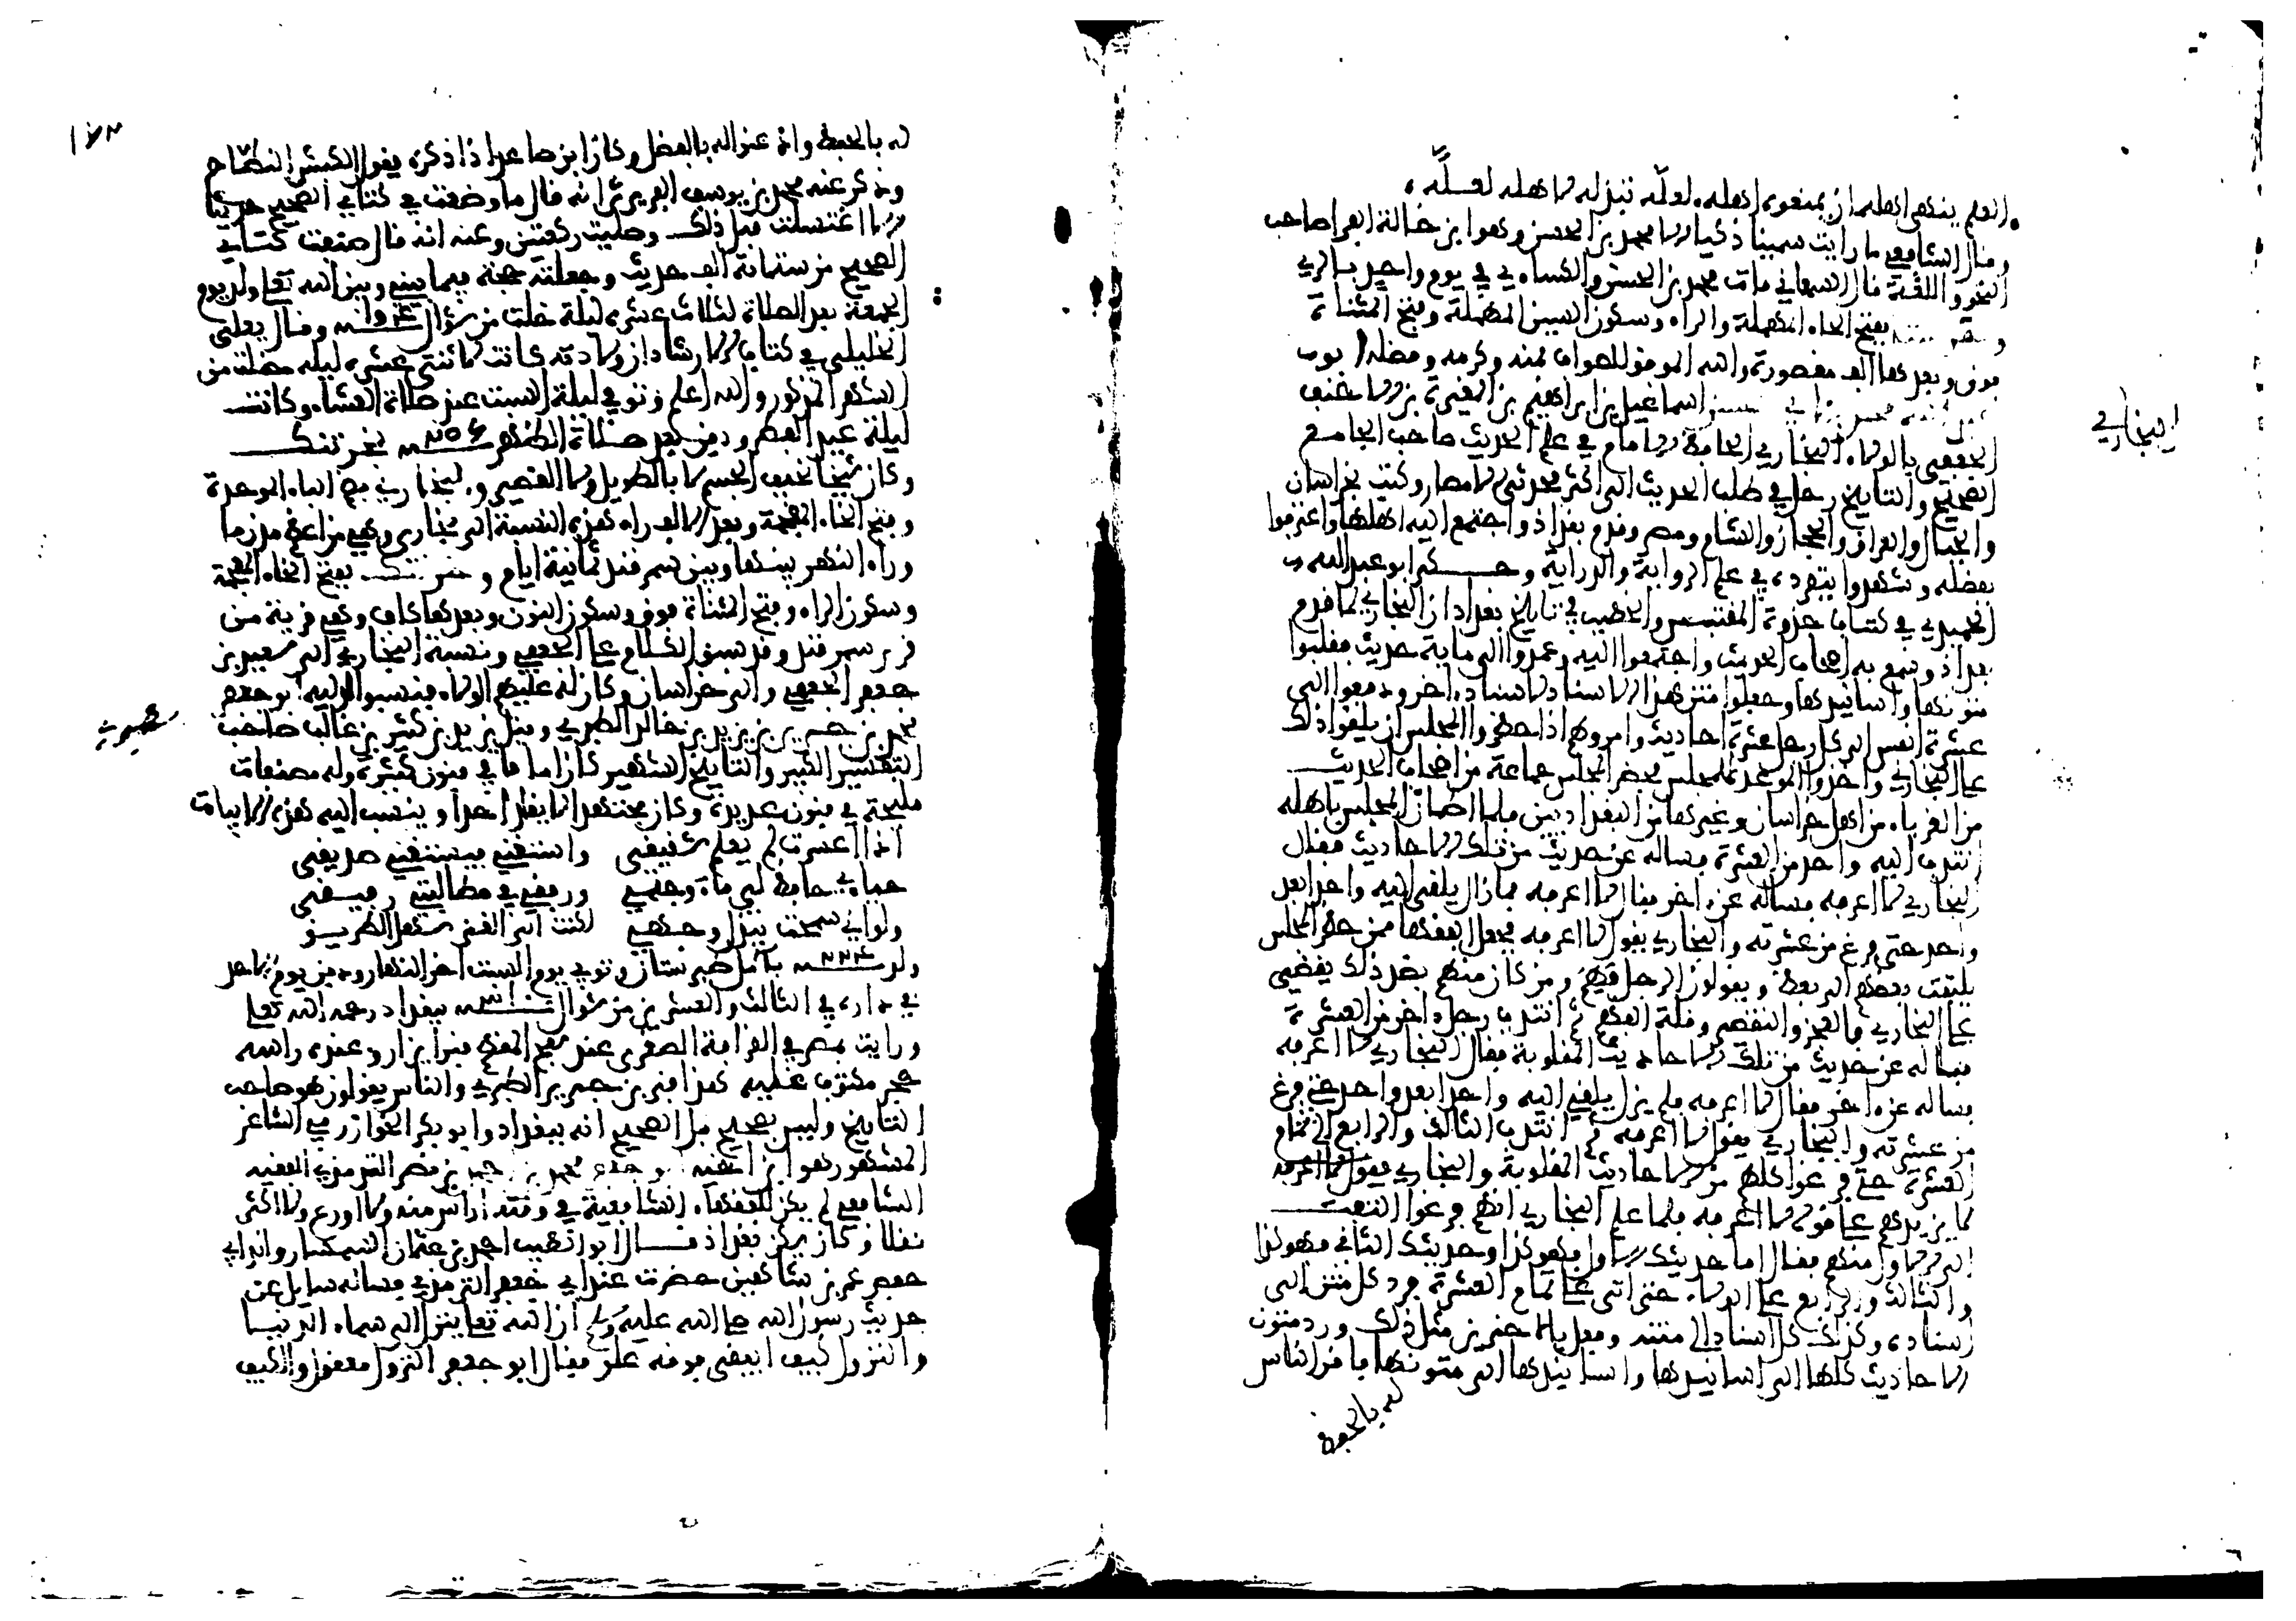 العلم ينهى اهله ان يمنعوه اهله لعله تبذله لاهله لعله
وقال الشافعي ما رايت سمينا ذكيا الا محمد بن الحسن وهو ابن خالة الفرا صاحب
النحو واللغة قال السمعاني مات محمد بن الحسن والكساءي في يوم واحد بالري
بفتح الحاء المهملة والراء وسكون السين المهملة وفتح المثناة
فوق وبعدها الف مقصورة والله الموفق للصواب بمنه وكرمه وفضله
اسماعيل بن ابراهيم بن المغيرة بن الاحنف
الجعفي بالولاء البخاري الحافظ الامام في علم الحديث صاحب الجامع
الصحيح والتاريخ رحل في طلب الحديث الى اكثر محدثي الامصار وكتب بخراسان
والجبال والعراق والحجاز والشام ومصر وقدم بغداذ واجتمع اليه اهلها واعترفوا
بفضله وشهدوا بتفرده في علم الرواية والدراية وحكى ابو عبد الله
الحميدي في كتاب جذوة المقتبس والخطيب في تاريخ بغداد ان البخاري لما قدم
بغداذ وسمع به اصحاب الحديث واجتمعوا اليه وعمدوا الى ماية حديث فقلبوا
متونها واسانيدها وجعلوا متن هذا الاسناد لاسناد اخر ودفعوا الى
عشرة انفس الى كل رجل عشرة احاديث وامروهم اذا حضروا المجلس ان يلقوا ذلك
على البخاري واخذوا الموعد للمجلس فحضر المجلس جماعة من اصحاب الحديث
من الغرباء من اهل خراسان وغيرها من البغداديين فلما اطمان المجلس باهله
انتدب اليه واحد من العشرة فساله عن حديث من تلك الاحاديث فقال
البخاري لا اعرفه فساله عن اخر فقال لا اعرفه فما زال يلقي اليه واحدا بعد
واحد حتى فرغ من عشرته والبخاري يقول لا اعرفه فجعل الفقهاء ممن حضر المجلس
يلتفت بعضهم الى بعض ويقولون الرجل فهم ومن كان منهم بضد ذلك يقضي
على البخاري بالعجز والتقصير وقلة الفهم ثم انتدب رجل اخر من العشرة
فساله عن حديث من تلك الاحاديث المقلوبة فقال البخاري لا اعرفه
فساله عن اخر فقال لا اعرفه فلم يزل يلقي اليه واحدا بعد واحد حتى فرغ
من عشرته والبخاري يقول لا اعرفه ثم انتدب الثالث والرابع الى تمام
العشرة حتى فرغوا كلهم من الاحاديث المقلوبة والبخاري يقول لا اعرفه
لا يزيدهم على قوله لا اعرفه فلما علم البخاري انهم فرغوا التفت
الى الاول منهم فقال اما حديثك الاول فهو كذا وحديثك الثاني فهو كذا
والثالث والرابع على الولاء حتى اتى على تمام العشرة فرد كل متن الى
اسناده وكذلك كل اسناد الى متنه وفعل بالاخرين مثل ذلك ورد متون
الاحاديث كلها الى اسانيدها واسانيدها الى متونها فاقر الناس
له بالحفظ
البخاري
له بالحفظ واذعنوا له بالفضل وكان ابن صاعد اذا ذكره يقول الكبش النطاح
وذكر عنه محمد بن يوسف الفربري انه قال ما وضعت في كتابي الصحيح حديثا
الا اغتسلت قبل ذلك وصليت ركعتين وعنه انه قال صنفت كتابي
الصحيح من ستماية الف حديث وجعلته حجة فيما بيني وبين الله تعلى ولد يوم
الجمعة بعد الصلاة لثلاث عشرة ليلة خلت من شوال وقال يعلى
الخليلي في كتاب الارشاد ان ولادته كانت لاثنتي عشرة ليلة خلت من
الشهر المذكور والله اعلم وتوفي ليلة السبت عند صلاة العشاء وكانت
ليلة عيد الفطر ودفن بعد صلاة الظهر بخرتنك
وكان شيخا نحيف الجسم لا بالطويل ولا القصير والبخاري بضم الباء الموحدة
وفتح الخاء المعجمة وبعد الالف راء هذه النسبة الى بخارى وهي من اعظم مدن ما
وراء النهر بينها وبين سمرقند ثمانية ايام وخرتنك بفتح الخاء المعجمة
وسكون الراء وفتح المثناة فوق وسكون النون وبعدها كاف وهي قرية من
قرى سمرقند وقد سبق الكلام على الجعفي ونسبة البخاري الى سعيد بن
جعفر الجعفي والي خراسان وكان له عليهم الولاء فنسبوا اليه ابو جعفر
محمد بن جرير بن يزيد بن خالد الطبري وقيل يزيد بن كثير بن غالب صاحب
التفسير الكبير والتاريخ الشهير كان اماما في فنون كثيرة وله مصنفات
مليحة في فنون عديدة وكان مجتهدا لا يقلد احدا وينسب اليه هذه الابيات
اذا اعسرت لم يعلم شقيقي واستغني فيستغني صديقي
حياءي حافظ لي ماء وجهي ورفقي في مطالبتي رفيقي
ولو اني سمحت ببذل وجهي لكنت الى الغنى سهل الطريق
ولد ٢٢٤ بامل طبرستان وتوفي يوم السبت اخر النهار ودفن يوم الاحد
في داره في الثالث والعشرين من شوال ببغداد رحمه الله تعلى
ورايت بمصر في القرافة الصغرى عند سفح المقطم قبرا يزار وعند راسه
حجر مكتوب عليه هذا قبر بن جرير الطبري والناس يقولون هو صاحب
التاريخ وليس بصحيح بل الصحيح انه ببغداد وابو بكر الخوارزمي الشاعر
المشهور هو ابن اخته ابو جعفر محمد بن احمد بن نصر الترمذي الفقيه
الشافعي لم يكن للفقهاء الشافعية في وقته اراس منه ولا اورع ولا اكثر
تقللا وكان يسكن بغداذ قال ابو الطيب احمد بن عثمان السمسار والد ابي
حفص عمر بن شاهين حضرت عند ابي جعفر الترمذي فساله سايل عن
حديث رسول الله صلى الله عليه وسلم ان الله تعلى ينزل الى سماء الدنيا
والنزول كيف ايبقى فوقه علو فقال ابو جعفر النزول معقول والكيف